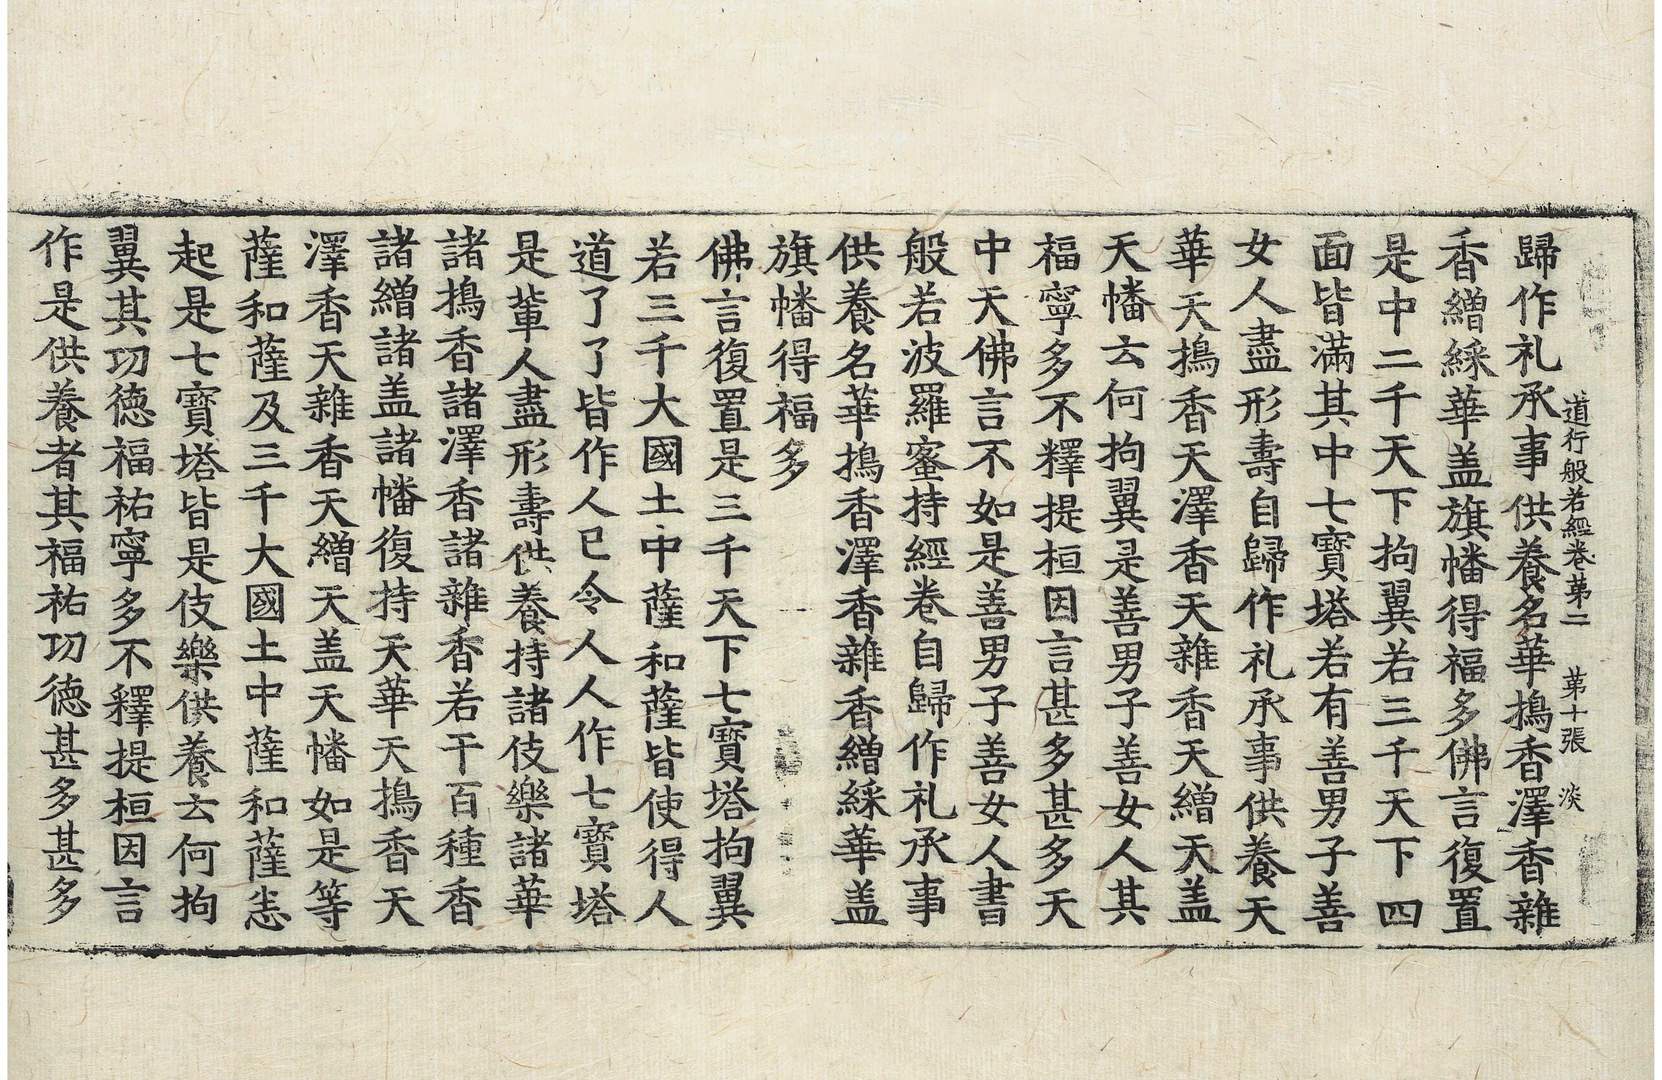 道行般若經卷第二 第十張 淡
歸作礼承事供養名華搗香澤香雜
香繒綵華盖旗幡得福多佛言復置
是中二千天下拘翼若三千天下四
面皆滿其中七寶塔若有善男子善
女人盡形壽自歸作礼承事供養天
華天搗香天澤香天雜香天繒天盖
天幡云何拘翼是善男子善女人其
福寧多不釋提桓因言甚多甚多天
中天佛言不如是善男子善女人書
般若波羅蜜持經卷自歸作礼承事
供養名華搗香澤香雜香繒綵華盖
旗幡得福多
佛言復置是三千天下七寶塔拘翼
若三千大國土中薩和薩皆使得人
道了了皆作人已令人人作七寶塔
是軰人盡形壽供養持諸伎樂諸華
諸搗香諸澤香諸雜香若干百種香
諸繒諸盖諸幡復持天華天搗香天
澤香天雜香天繒天盖天幡如是等
薩和薩及三千大國土中薩和薩悉
起是七寶塔皆是伎樂供養云何拘
翼其功德福祐寧多不釋提桓因言
作是供養者其福祐功德甚多甚多